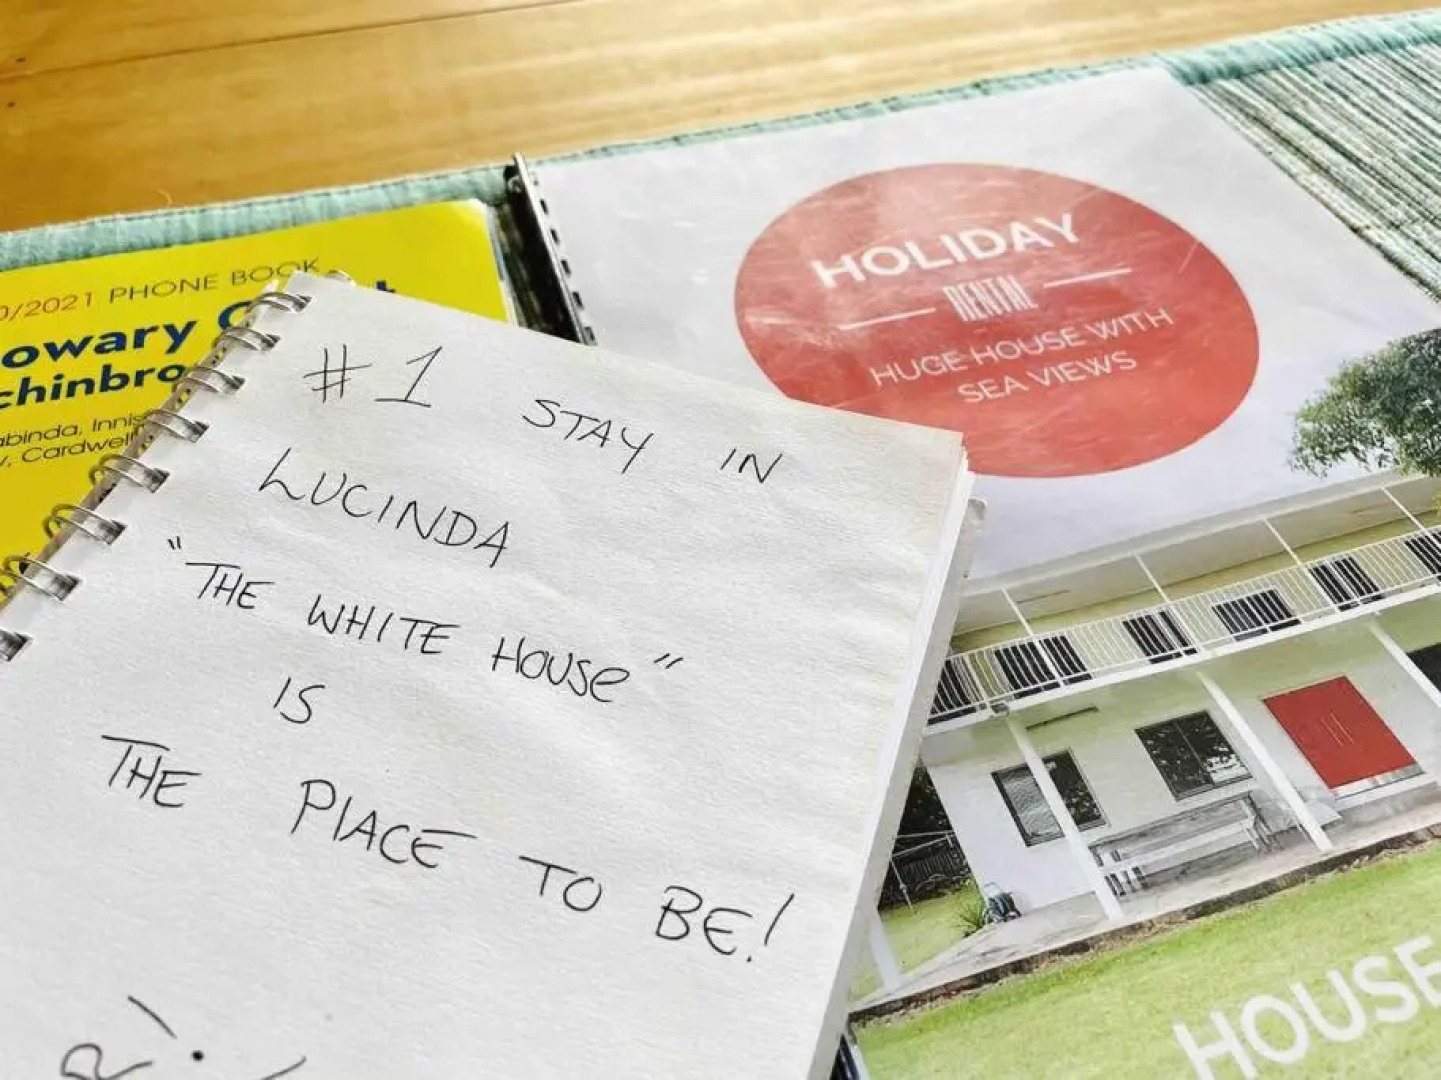 0/2021 PHONE BOOK
owary
chinbro
abinda, Innis
, Cardwell
#1 STAY IN
LUCINDA
"THE WHITE HOUSE"
IS
THE PLACE TO BE!
HOLIDAY
RENTAL
HUGE HOUSE WITH
SEA VIEWS
HOUSE